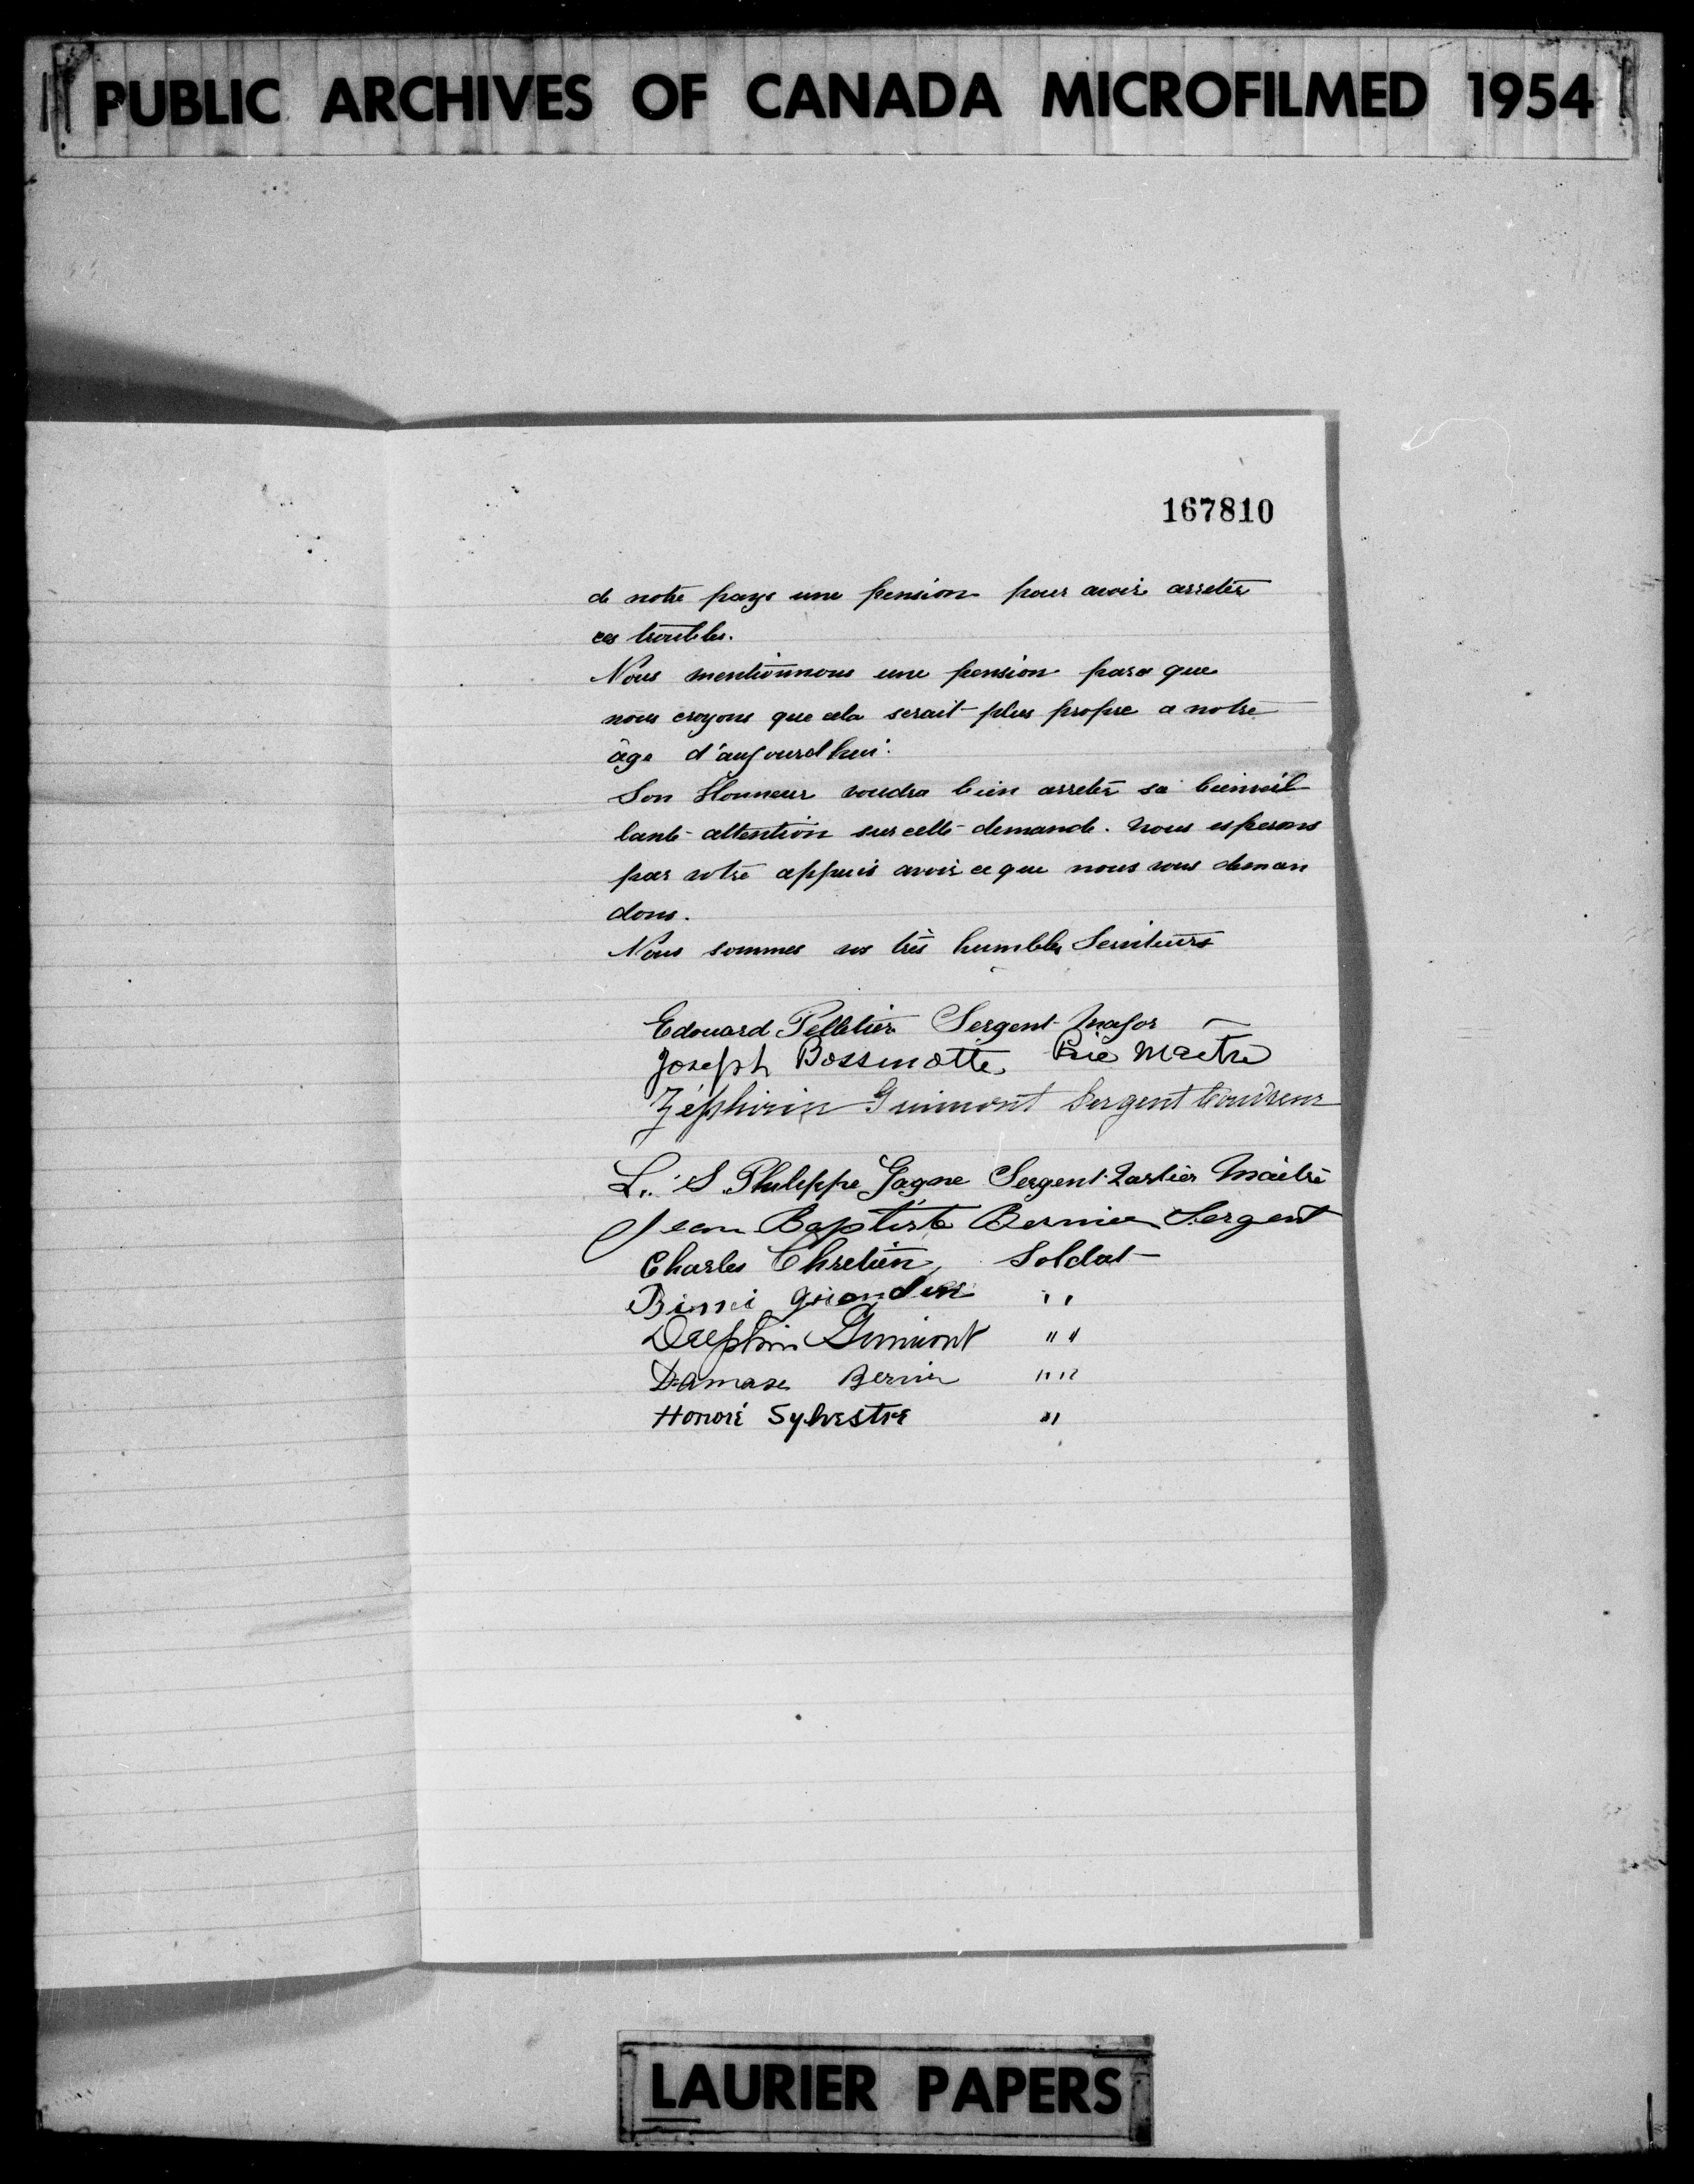 PUBLIC ARCHIVES OF CANADA MICROFILMED 1954
167810
de notre pays une pension pour avoir arreter
ces troubles.
Nous mentionnons une pension parce que
nous croyons que cela serait plus propre a notre
âge d'aujourd'hui.
Son Honneur voudra bien arreter sa bienveil
lante attention sur cette demande. Nous esperons
par votre appuis avoir ce que nous vous deman
dons.
Nous sommes vos très humbles Serviteurs
Edouard Pelletier Sergent Major
Joseph Bossinotte Maitre
Zéphirin Guimont Sergent
L. S. Philippe Gagne Sergent Qartier Maitre
Jean Baptiste Bernier Sergent
Charles Chretien, Soldat
" "
Delphin Guimont " "
Damase Bernier " "
Honoré Sylvestre "
LAURIER PAPERS